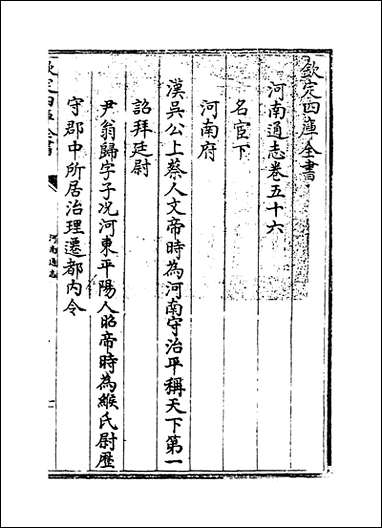 欽定四庫全書
河南通志卷五十六
名宦下
河南府
漢吳公上蔡人文帝時為河南守治平稱天下第一
詔拜廷尉
尹翁歸字子况河東平陽人昭帝時為緱氏尉歴
守郡中所居治理遷都内令
欽定四庫全書
河南通志